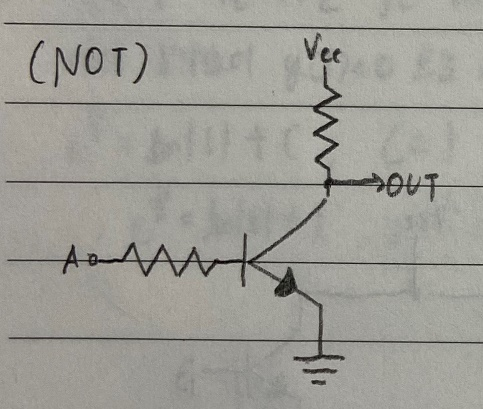 (NOT)
Vcc
OUT
A